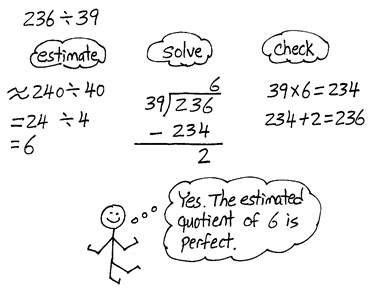 236÷39
estimate
≈240÷40
=24÷4
=6
solve
6
39)236
- 234
2
check
39×6=234
234+2=236
Yes. The estimated
quotient of 6 is
perfect.